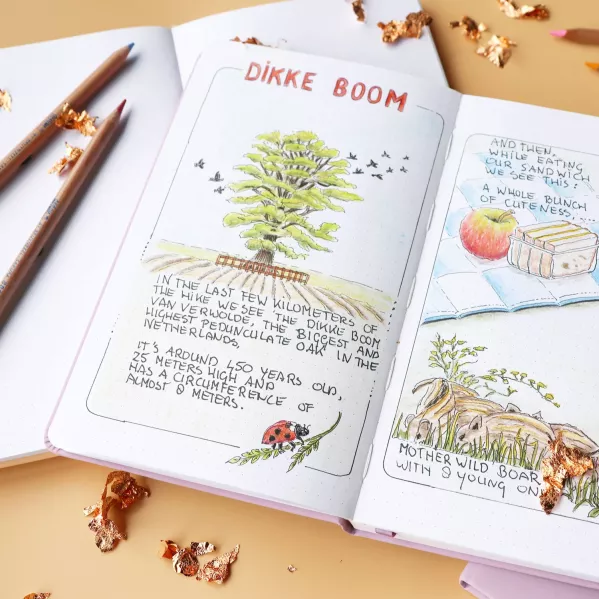 DIKKE BOOM
IN THE LAST FEW KILOMETERS OF
THE HIKE WE SEE THE DIKKE BOOM
VAN VERWOLDE, THE BIGGEST AND
HIGHEST PEDUNCULATE OAK IN THE
NETHERLANDS
IT'S AROUND 450 YEARS OLD,
25 METERS HIGH AND
HAS A CIRCUMFERENCE OF
ALMOST 8 METERS.
AND THEN,
WHILE EATING
OUR SANDWICH
WE SEE THIS:
A WHOLE BUNCH
OF CUTENESS....
MOTHER WILD BOAR
WITH 9 YOUNG ON